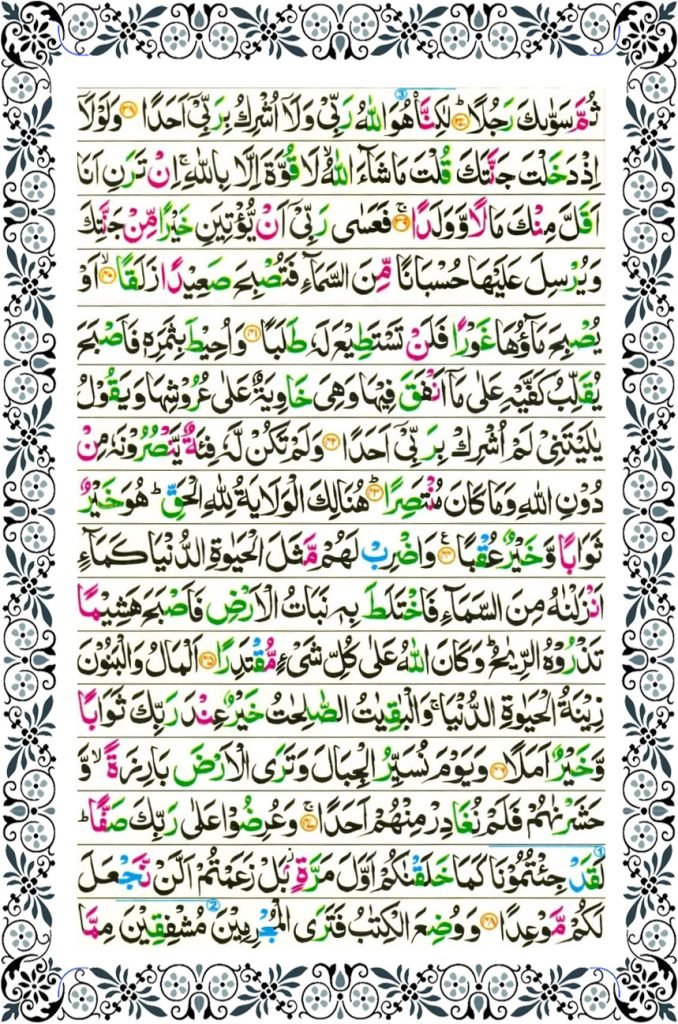 ثُمَّ سَوّٰىكَ رَجُلًا ؕ‏﴿۳۷﴾ لٰكِنَّا۠ هُوَ اللّٰهُ رَبِّىْ وَلَاۤ اُشْرِكُ بِرَبِّىْۤ اَحَدًا ﴿۳۸﴾ وَلَوْلَاۤ
اِذْ دَخَلْتَ جَنَّتَكَ قُلْتَ مَا شَآءَ اللّٰهُ ۙ لَا قُوَّةَ اِلَّا بِاللّٰهِ ۚ اِنْ تَرَنِ اَنَا
اَقَلَّ مِنْكَ مَالًا وَّوَلَدًا ۚ‏﴿۳۹﴾ فَعَسٰى رَبِّىْۤ اَنْ يُّؤْتِيَنِ خَيْرًا مِّنْ جَنَّتِكَ
وَيُرْسِلَ عَلَيْهَا حُسْبَانًا مِّنَ السَّمَآءِ فَتُصْبِحَ صَعِيْدًا زَلَقًا ۙ‏﴿۴۰﴾ اَوْ
يُصْبِحَ مَآؤُهَا غَوْرًا فَلَنْ تَسْتَطِيْعَ لَهٗ طَلَبًا ﴿۴۱﴾ وَاُحِيْطَ بِثَمَرِهٖ فَاَصْبَحَ
يُقَلِّبُ كَفَّيْهِ عَلٰى مَاۤ اَنْفَقَ فِيْهَا وَهِىَ خَاوِيَةٌ عَلٰى عُرُوْشِهَا وَيَقُوْلُ
يٰلَيْتَنِىْ لَمْ اُشْرِكْ بِرَبِّىْۤ اَحَدًا ﴿۴۲﴾ وَلَمْ تَكُنْ لَّهٗ فِئَةٌ يَّنْصُرُوْنَهٗ مِنْ
دُوْنِ اللّٰهِ وَمَا كَانَ مُنْتَصِرًا ؕ‏﴿۴۳﴾ هُنَالِكَ الْوَلَايَةُ لِلّٰهِ الْحَقِّ ؕ هُوَ خَيْرٌ
ثَوَابًا وَّخَيْرٌ عُقْبًا ﴿۴۴﴾ وَاضْرِبْ لَهُمْ مَّثَلَ الْحَيٰوةِ الدُّنْيَا كَمَآءٍ
اَنْزَلْنٰهُ مِنَ السَّمَآءِ فَاخْتَلَطَ بِهٖ نَبَاتُ الْاَرْضِ فَاَصْبَحَ هَشِيْمًا
تَذْرُوْهُ الرِّيٰحُ ؕ وَكَانَ اللّٰهُ عَلٰى كُلِّ شَىْءٍ مُّقْتَدِرًا ﴿۴۵﴾ اَلْمَالُ وَالْبَنُوْنَ
زِيْنَةُ الْحَيٰوةِ الدُّنْيَا ۚ وَالْبٰقِيٰتُ الصّٰلِحٰتُ خَيْرٌ عِنْدَ رَبِّكَ ثَوَابًا
وَّخَيْرٌ اَمَلًا ﴿۴۶﴾ وَيَوْمَ نُسَيِّرُ الْجِبَالَ وَتَرَى الْاَرْضَ بَارِزَةً ۙ وَّ
حَشَرْنٰهُمْ فَلَمْ نُغَادِرْ مِنْهُمْ اَحَدًا ۚ‏﴿۴۷﴾ وَعُرِضُوْا عَلٰى رَبِّكَ صَفًّا ؕ
لَقَدْ جِئْتُمُوْنَا كَمَا خَلَقْنٰكُمْ اَوَّلَ مَرَّةٍۢ ۡ بَلْ زَعَمْتُمْ اَلَّنْ نَّجْعَلَ
لَكُمْ مَّوْعِدًا ﴿۴۸﴾ وَوُضِعَ الْكِتٰبُ فَتَرَى الْمُجْرِمِيْنَ مُشْفِقِيْنَ مِمَّا